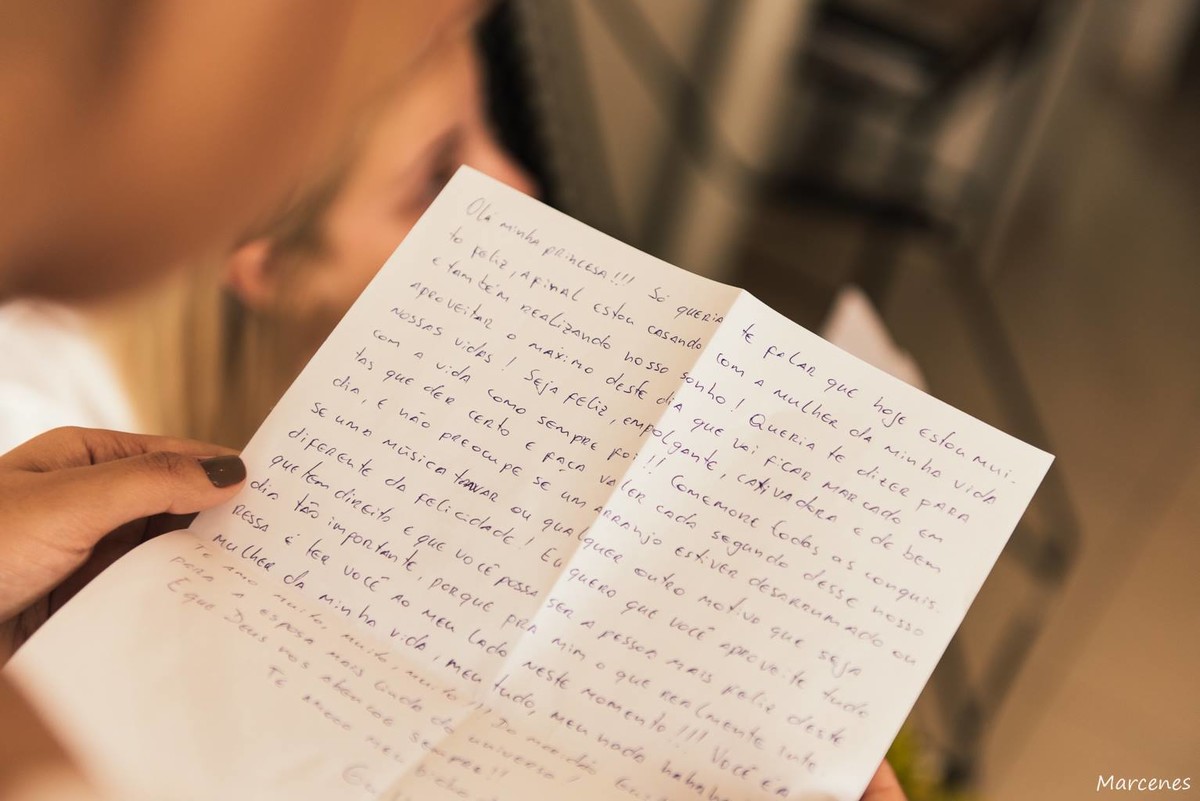 Olá minha princesa!!! Só queria te falar que hoje estou mui-
to feliz, afinal estou casando com a mulher da minha vida
e também realizando nosso sonho! Queria te dizer para
aproveitar o máximo deste dia que vai ficar marcado em
nossas vidas! Seja feliz, empolgante, cativadora e de bem
com a vida como sempre foi!! Comemore todas as conquis-
tas que der certo e faça valer cada segundo desse nosso
dia, e não preocupe se um arranjo estiver desarrumado ou
se uma música travar ou qualquer outro motivo que seja
diferente da felicidade! Eu quero que você aproveite tudo
que tem direito e que você possa ser a pessoa mais feliz deste
dia tão importante, porque pra mim o que realmente inte
ressa é ter você ao meu lado neste momento!!! Você é a
mulher da minha vida, meu tudo, meu nada hahaha
Te amo muito, muito, muito!!! Do
para a esposa mais linda do universo!
E que Deus nos abençoe sempre!!
Te amo meu
Marcenes